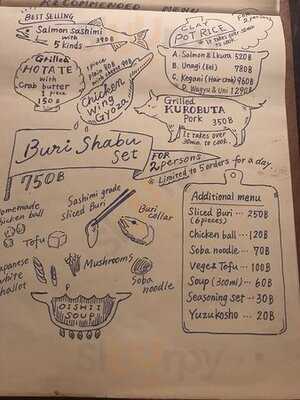 RECOMMENDED MENU
BEST SELLING
Salmon Sashimi
with
5 kinds
390B
Grilled
HOTATE
with
Crab butter
1 piece
150B
1 piece
Chicken
wing
Gyoza
CLAY
POT RICE
A. Salmon & Ikura 520B
B. Unagi (Eel) 780B
C. Kegani (Hair crab) 960B
D. Wagyu & Uni 1290B
Grilled
KUROBUTA
Pork 350B
It takes over
30min. to cook.
Buri Shabu
Set
750B
FOR
2 persons
* Limited to 5 orders for a day
Sashimi grade
sliced Buri
Buri
collar
Homemade
chicken ball
Tofu
Mushrooms
Japanese
white
shallot
Soba
noodle
OISHII
SOUP
Additional menu
Sliced Buri ... 250B
(6 pieces)
Chicken ball ... 120B
Soba noodle ... 70B
Vege & Tofu ... 100B
Soup (300ml) ... 60B
Seasoning set ... 30B
Yuzukosho ... 20B